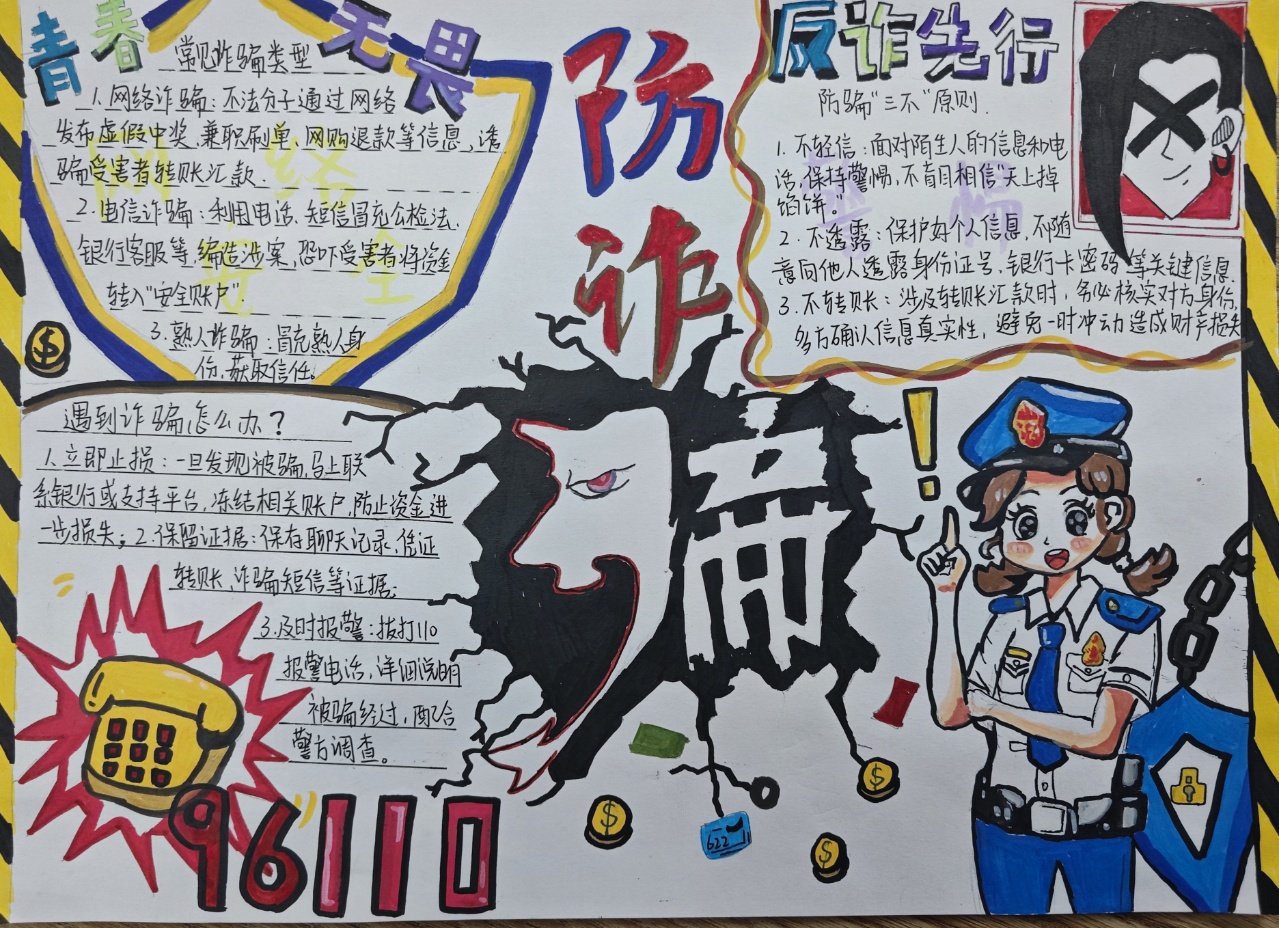 青春无畏
常见诈骗类型
1.网络诈骗:不法分子通过网络
发布虚假中奖、兼职刷单、网购退款等信息,诱
骗受害者转账汇款.
2.电信诈骗:利用电话、短信冒充公检法、
银行客服等,编造涉案,恐吓受害者将资金
转入“安全账户”.
3.熟人诈骗:冒充熟人身
份,获取信任。
网络
安全
防
诈
骗
反诈先行
防骗“三不”原则.
1.不轻信:面对陌生人的信息和电
话,保持警惕,不盲目相信“天上掉
馅饼”。
2.不透露:保护好个人信息,不随
意向他人透露身份证号,银行卡密码等关键信息.
3.不转账:涉及转账汇款时,务必核实对方身份,
多方确认信息真实性,避免一时冲动造成财产损失
警惕
遇到诈骗怎么办?
1.立即止损:一旦发现被骗,马上联
系银行或支持平台,冻结相关账户,防止资金进
一步损失;2.保留证据:保存聊天记录,凭证
转账、诈骗短信等证据;
3.及时报警:拔打110
报警电话,详细说明
被骗经过,配合
警方调查。
96110
!
622